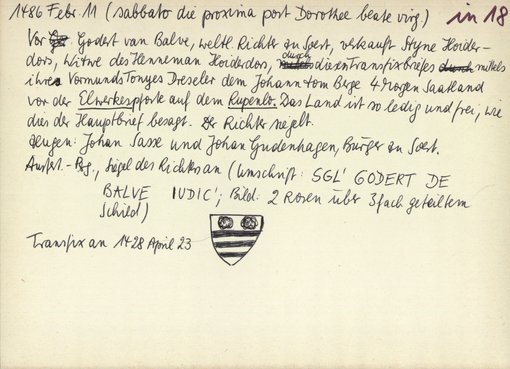 1486 Febr. 11 (sabbato die proxima post Dorothee beate virg.)
in 18
Vor Godert van Balve, weltl. Richter zu Soest, verkauft Styne Hoider-
dors, Witwe des Henneman Hoiderdors, durch diesen Transfixbrief mittels
ihres Vormunds Tonyes Dreseler dem Johann tom Berge 4 Morgen Saatland
vor der Elwerkespforte auf dem Rupenlo. Das Land ist so ledig und frei, wie
dies der Hauptbrief besagt. Der Richter siegelt.
Zeugen: Johan Sasse und Johan Gudenhagen, Bürger zu Soest.
Ausfert.-Pgt., Siegel des Richters an (Umschrift: SGL' GODERT DE
BALVE IUDIC'; Bild: 2 Rosen über 3fach geteiltem
Schild)
Transfix an 1428 April 23